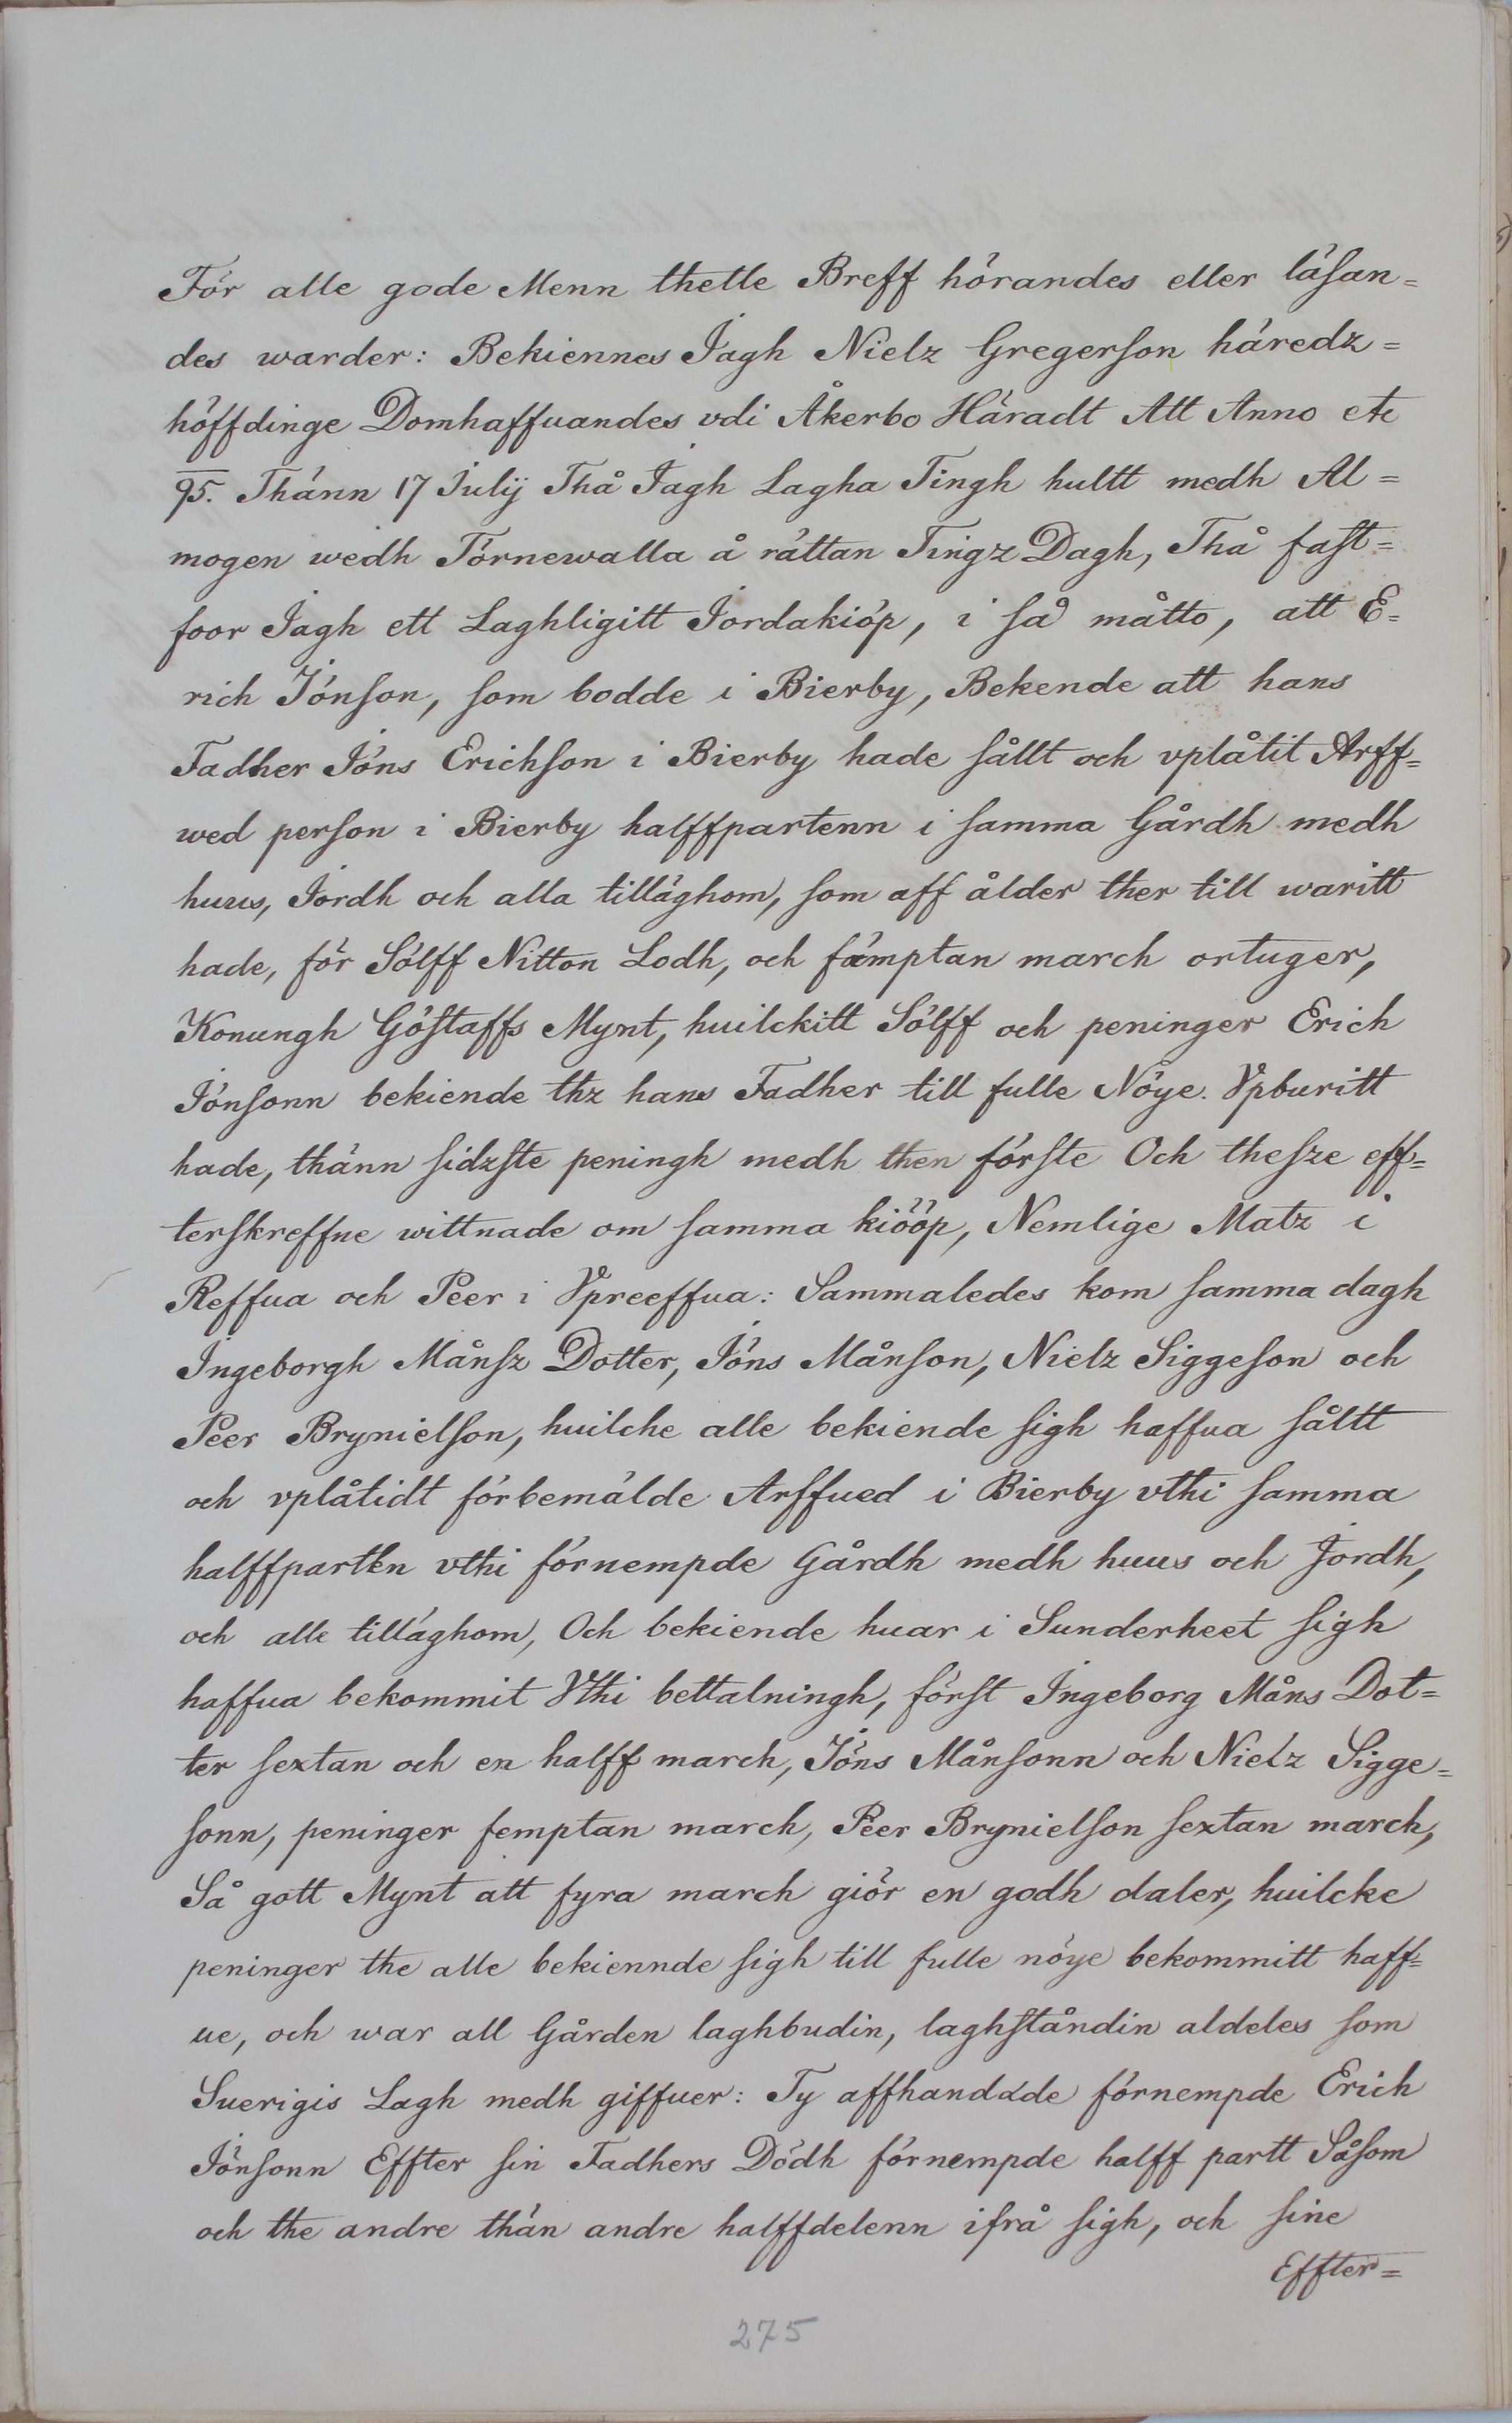 För alle gode Menn thette Breff hörandes eller läsan=
des warder: Bekiennes Jagh Nielz Gregerson häredz=
höffdinge Domhaffuandes vdi Åkerbo Häradt Att Anno etc
95. Thänn 17 Julij Thå Jagh Lagha Tingh hultt medh Al=
mogen wedh Törnewalla å rättan Tingz Dagh, Thå fast=
foor Jagh ett Laghligitt Jordakiöp, i så måtto, att E=
rich Jönson, som bodde i Bierby, Bekende att hans
Fadher Jöns Erichson i Bierby hade sållt och vplåtit Arff=
wed person i Bierby halffpartenn i samma Gårdh medh
huus, Jordh och alla tilläghom, som aff ålder ther till waritt
hade, för Sölff Nitton Lodh, och fämptan march ortuger,
Konungh Göstaffs Mynt, huilckitt Sölff och peninger Erich
Jönsonn bekiende thz hans Fadher till fulle Nöye. Vpburitt
hade, thänn sidzste peningh medh then förste Och thesze eff=
terskreffne wittnade om samma kiööp, Nemlige Matz i
Reffua och Peer i Vpreeffua: Sammaledes kom samma dagh
Ingeborgh Månsz Dotter, Jöns Månson, Nielz Siggeson och
Peer Brynielson, huilche alle bekiende sigh haffua såltt
och vplåtidt förbemälde Arffued i Bierby vthi samma
halffparten vthi förnempde Gårdh medh huus och Jordh,
och alle tilläghom, Och bekiende huar i Sunderheet sigh
haffua bekommit Vthi bettalningh, först Ingeborg Måns Dot=
ter sextan och en halff march, Jöns Månsonn och Nielz Sigge=
sonn, peninger femptan march, Peer Brynielson sextan march,
Så gott Mynt att fyra march giör en godh daler, huilcke
peninger the alle bekiennde sigh till fulle nöye bekommitt haff=
ue, och war all Gården laghbudin, laghståndin aldeles som
Suerigis Lagh medh giffuer: Ty affhandade förnempde Erich
Jönsonn Effter sin Fadhers Dödh förnempde halff partt Såsom
och the andre thän andre halffdelenn ifrå sigh, och sine
Effter=
275